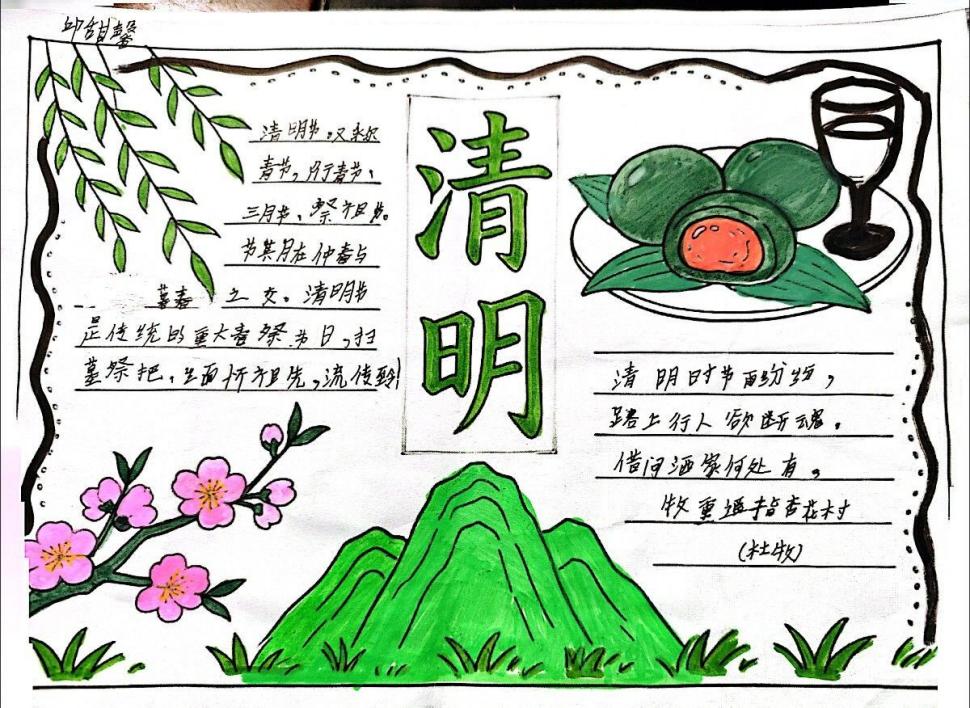 邱甜馨
清明节,又称
青节,行青节、
三月节、祭祖节。
节其月在仲春与
暮春 之交。清明节
是传统的重大春祭节日,扫
墓祭 祖先,流传
清
明
清明时节雨纷纷,
路上行人欲断魂。
借问酒家何处有,
牧童遥指杏花村
(杜牧)